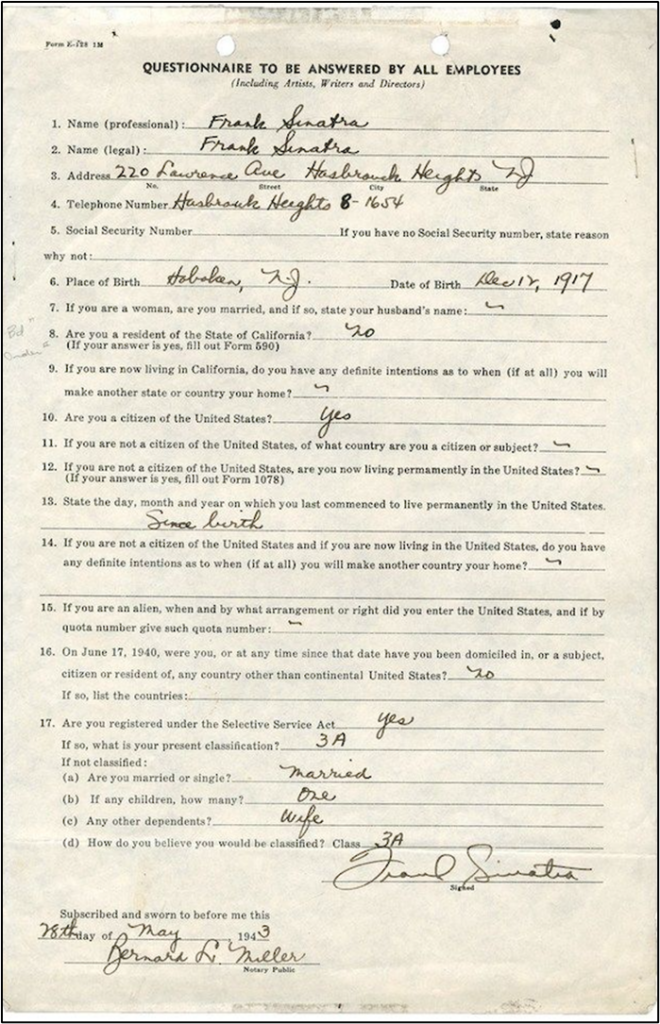 Form K-128 1M
QUESTIONNAIRE TO BE ANSWERED BY ALL EMPLOYEES
(Including Artists, Writers and Directors)
1. Name (professional): Frank Sinatra
2. Name (legal): Frank Sinatra
3. Address 220 Lawrence Ave Hasbrouck Heights NJ
No. Street City State
4. Telephone Number Hasbrouk Heights 8-1654
5. Social Security Number If you have no Social Security number, state reason
why not:
6. Place of Birth Hoboken, N.J. Date of Birth Dec 12, 1917
7. If you are a woman, are you married, and if so, state your husband's name: ~
8. Are you a resident of the State of California? No
(If your answer is yes, fill out Form 590)
9. If you are now living in California, do you have any definite intentions as to when (if at all) you will
make another state or country your home? ~
10. Are you a citizen of the United States? Yes
11. If you are not a citizen of the United States, of what country are you a citizen or subject? ~
12. If you are not a citizen of the United States, are you now living permamently in the United States? ~
(If your answer is yes, fill out Form 1078)
13. State the day, month and year on which you last commenced to live permanently in the United States.
Since birth
14. If you are not a citizen of the United States and if you are now living in the United States, do you have
any definite intentions as to when (if at all) you will make another country your home? ~
15. If you are an alien, when and by what arrangement or right did you enter the United States, and if by
quota number give such quota number: ~
16. On June 17, 1940, were you, or at any time since that date have you been domiciled in, or a subject,
citizen or resident of, any country other than continental United States? No
If so, list the countries:
17. Are you registered under the Selective Service Act Yes
If so, what is your present classification? 3A
If not classified:
(a) Are you married or single? Married
(b) If any children, how many? One
(c) Any other dependents? Wife
(d) How do you believe you would be classified? Class 3A
Frank Sinatra
Signed
Subscribed and sworn to before me this
28th day of May 1943
Bernard L. Miller
Notary Public